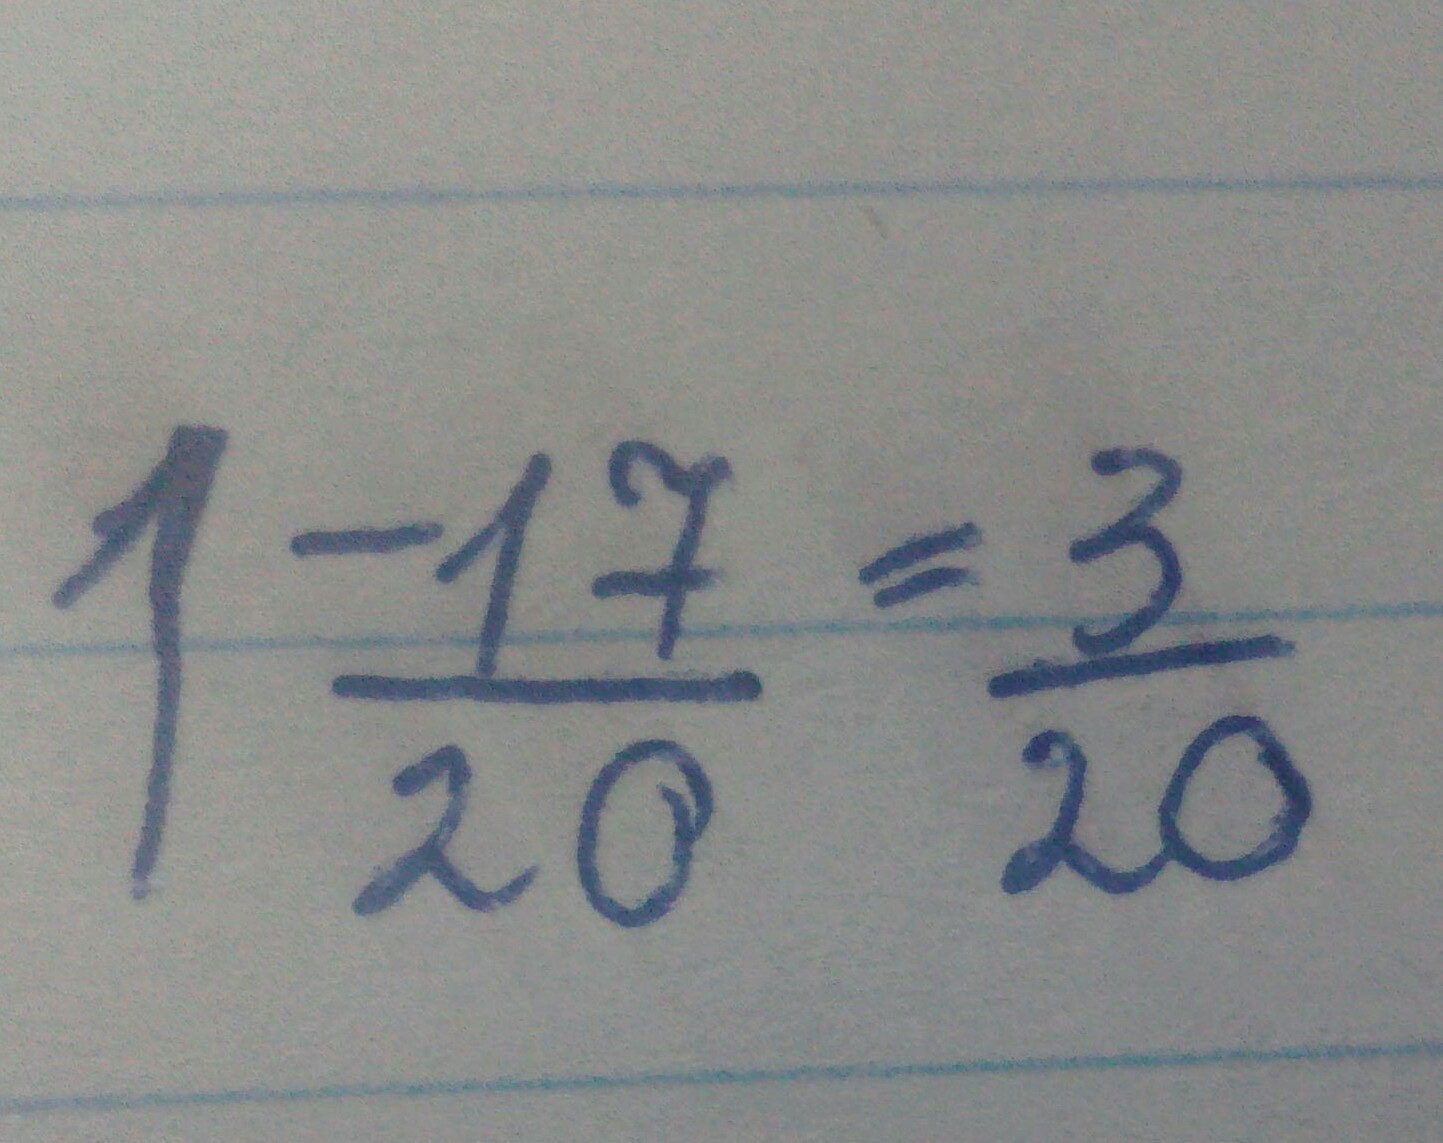 1 - 17/20 = 3/20